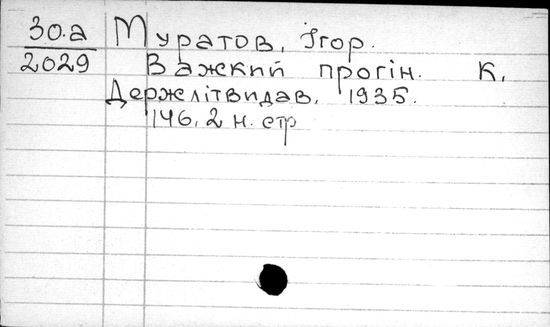 30.а
2029
Муратов, Ігор.
Важкий прогін. К.
Держлітвидав, 1935.
146, 2 н. стр